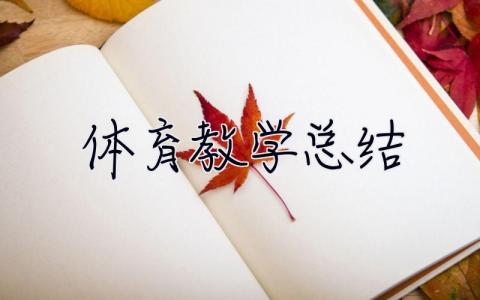 体育教学总结